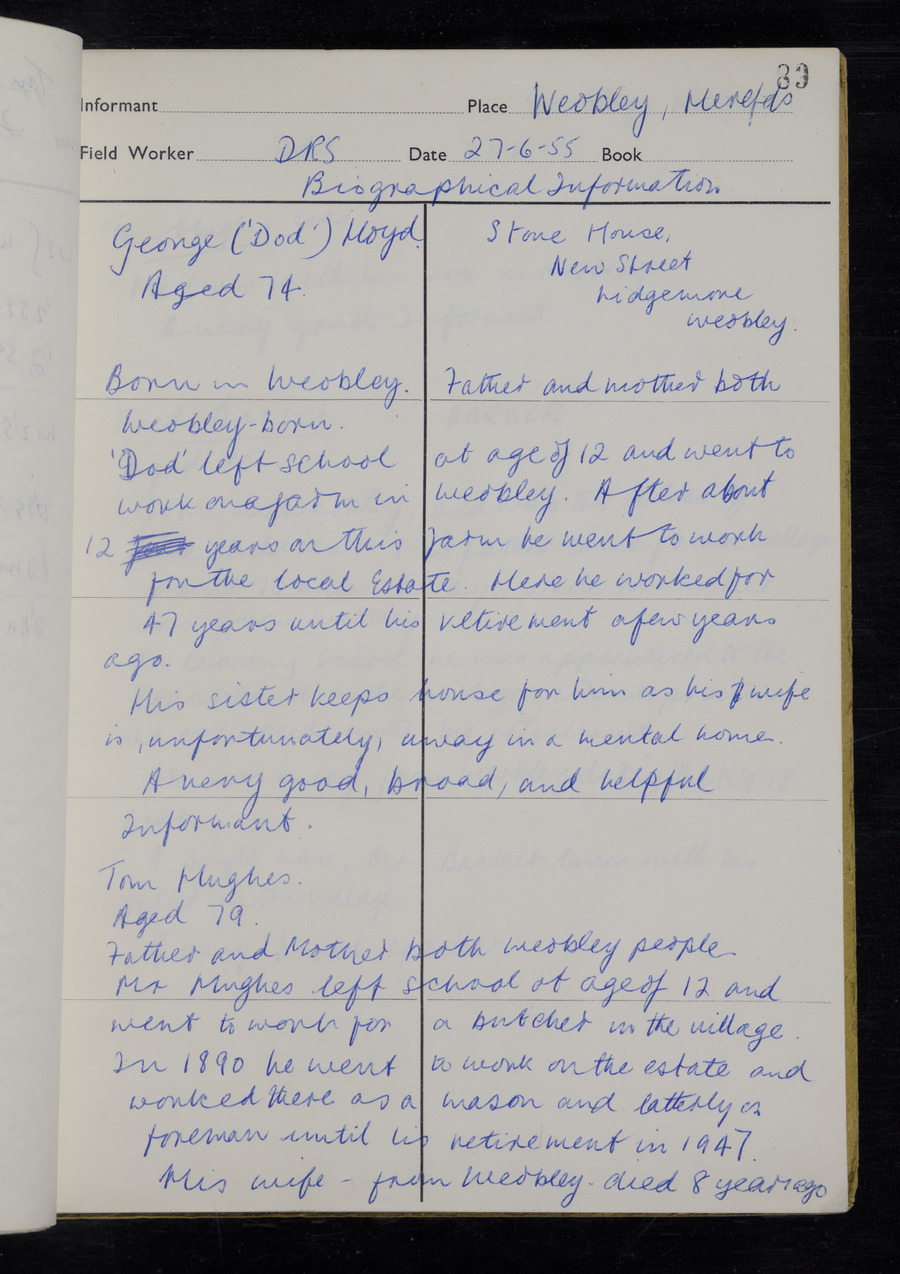 89
Informant Place Weobley, Herefds
Field Worker DRS Date 27-6-55 Book
Biographical Information
George ('Dod') Lloyd. Stone House,
Aged 74. New Street
Ledgemore
Weobley.
Born in Weobley. Father and mother both
Weobley-born.
'Dod' left school at age of 12 and went to
work on a farm in Weobley. After about
12 years on this farm he went to work
for the local Estate. Here he worked for
47 years until his retirement a few years
ago.
His sister keeps house for him as his wife
is, unfortunately, away in a mental home.
A very good, broad, and helpful
Informant.
Tom Hughes.
Aged 79.
Father and Mother both Weobley people.
Mr Hughes left school at age of 12 and
went to work for a butcher in the village.
In 1890 he went to work on the estate and
worked there as a mason and latterly as
foreman until his retirement in 1947.
His wife - from Weobley - died 8 years ago